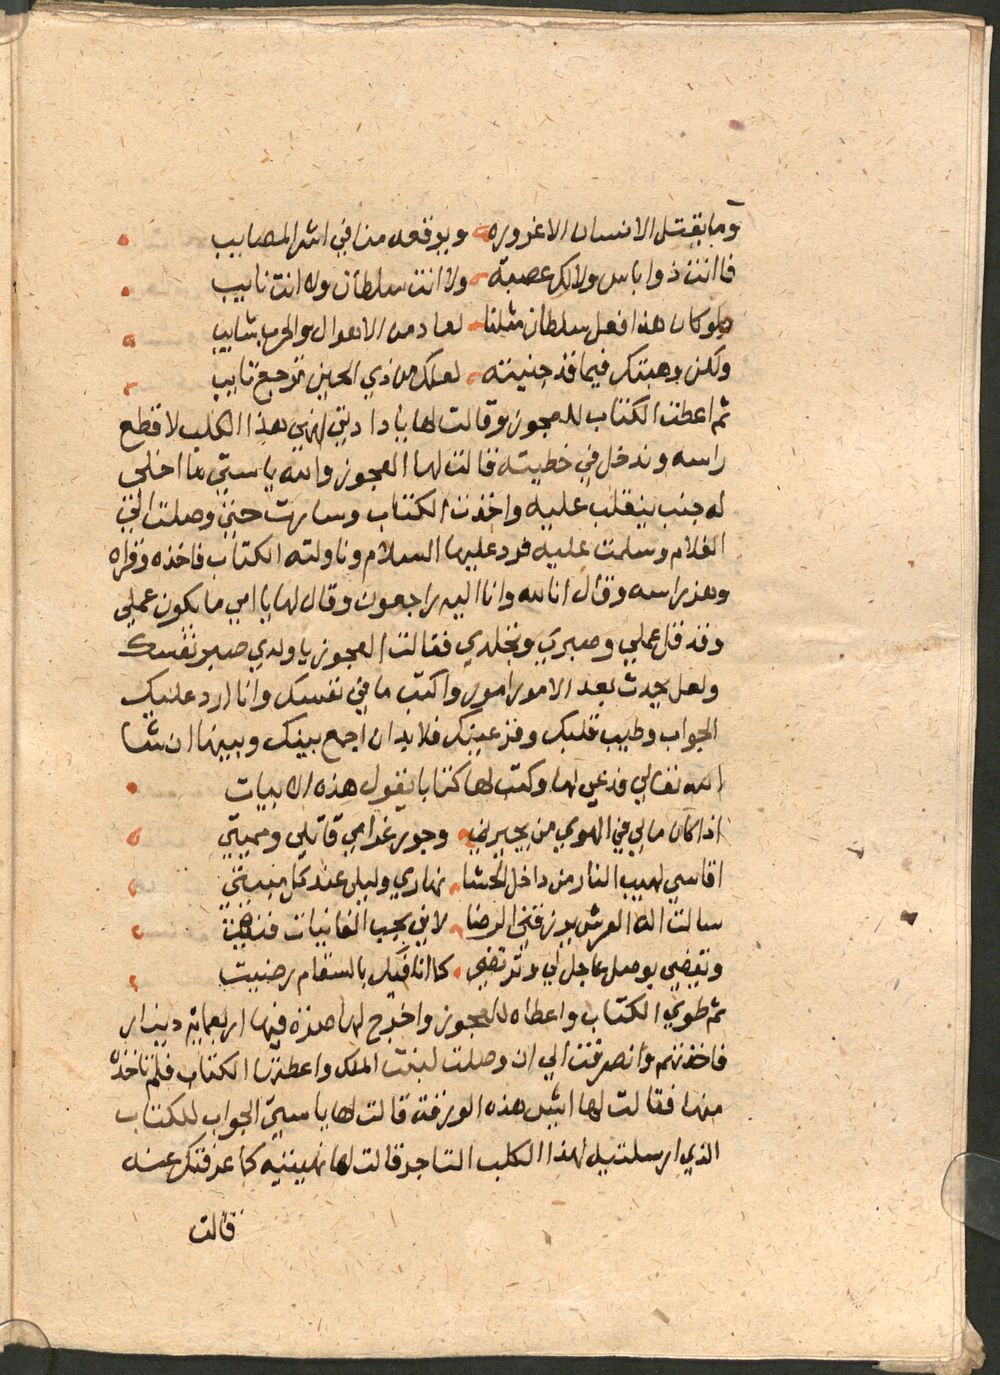 وما يقتل الانسان الا غروره ويوقعه منا في اشر المصايب
فا انت ذوا باس ولا لك عصبة ولا انت سلطان ولا انت نايب
ولو كان هذا فعل سلطان مثلنا لعاد من الاهوال والحرب شايب
ولكن وهبتك فيما قد جنيته لعلك من ذي الحين ترجع تايب
ثم اعطت الكتاب للعجوز وقالت لها يا دادتي انهي هذا الكلب لا قطع
راسه وندخل في خطيته فالت لها العجوز والله يا ستي ما اخلي
له جنب ينقلب عليه واخذت الكتاب وسارت حتي وصلت الي
الغلام وسلمت عليه فرد عليها السلام وناولته الكتاب فاخذه وقراه
وهز راسه وقال انا لله وانا اليه راجعون وقال لها يا امي ما يكون عملي
وقد قل عملي وصبري وتجلدي فقالت العجوز يا ولدي صبر نفسك
ولعل يحدث بعد الامور امور واكتب ما في نفسك وانا ارد عليك
الجواب وطيب قلبك وقر عينك فلا بد ان اجمع بينك وبينها ان شا
الله تعالي فدعي لها وكتب لها كتابا يقول هذه الابيات
اذا كان مالي في الهوي من يجيرني وجور غرامي قاتلي ومميتي
اقاسي لهيب النار من داخل الحشا نهاري وليلي عند كل مبيتي
سالت اله العرش يرزقني الرضا لاني بحب الغانيات فنيت
وتقضي بوصل عاجل لي وترتضي كما انا فيك بالسقام رضيت
ثم طوي الكتاب واعطاه للعجوز واخرج لها صرة فيها اربعماية دينار
فاخذتهم وانصرفت الي ان وصلت لبنت الملك واعطتها الكتاب فلم تاخذه
منها فقالت لها ايش هذه الورقة قالت لها يا ستي الجواب للكتاب
الذي ارسلتيه لهذا الكلب التاجر قالت لها نهيتيه كما عرفتك عنه
قالت